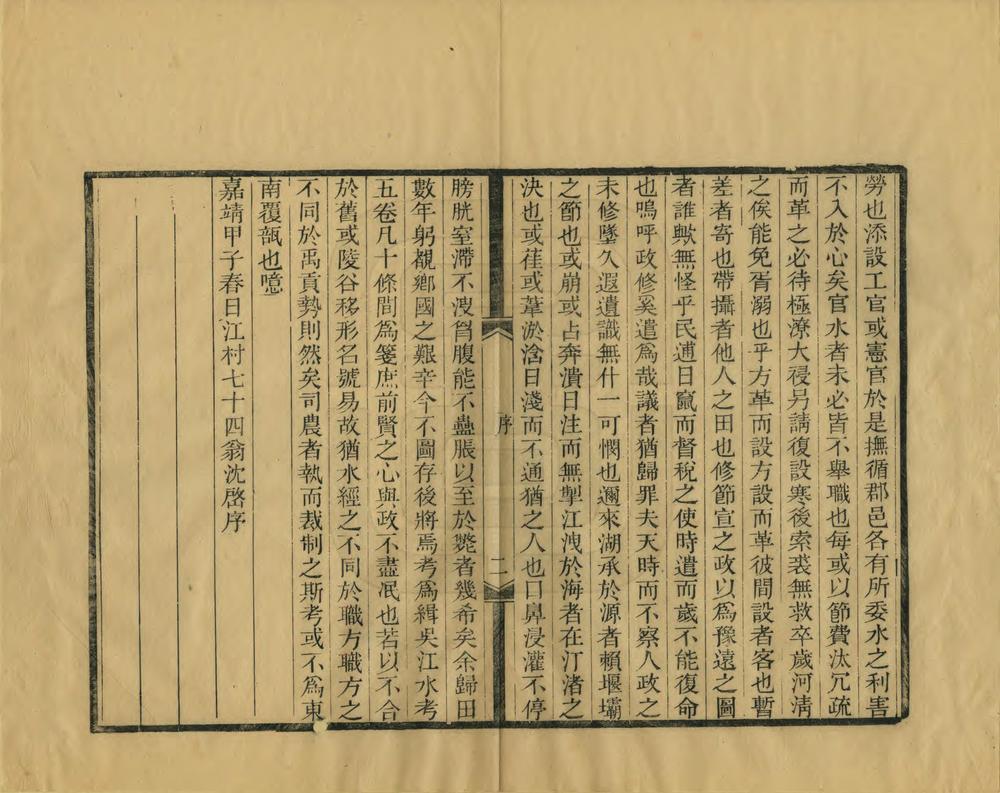 勞也添設工官或憲官於是撫循郡邑各有所委水之利害
不入於心矣官水者未必皆不舉職也每或以節費汰冗疏
而革之必待極潦大祲另請復設寒後索裘無救卒歲河清
之俟能免胥溺也乎方革而設方設而革彼間設者客也暫
差者寄也帶攝者他人之田也修節宣之政以爲豫遠之圖
者誰歟無怪乎民逋日竄而督稅之使時遣而歲不能復命
也嗚呼政修奚遣爲哉議者猶歸罪夫天時而不察人政之
未修墜久遐遺識無什一可憫也邇來湖承於源者賴堰壩
之節也或崩或占奔潰日注而無掣江洩於海者在汀渚之
決也或葑或葦淤淊日淺而不通猶之人也口鼻浸灌不停
序
二
膀胱室滯不溲胷腹能不蠱脹以至於斃者幾希矣余歸田
數年躬覩鄉國之艱辛今不圖存後將焉考爲緝吳江水考
五卷凡十條間爲箋庶前賢之心與政不盡泯也若以不合
於舊或陵谷移形名號易故猶水經之不同於職方職方之
不同於禹貢勢則然矣司農者執而裁制之斯考或不爲東
南覆瓿也噫
嘉靖甲子春日江村七十四翁沈啓序